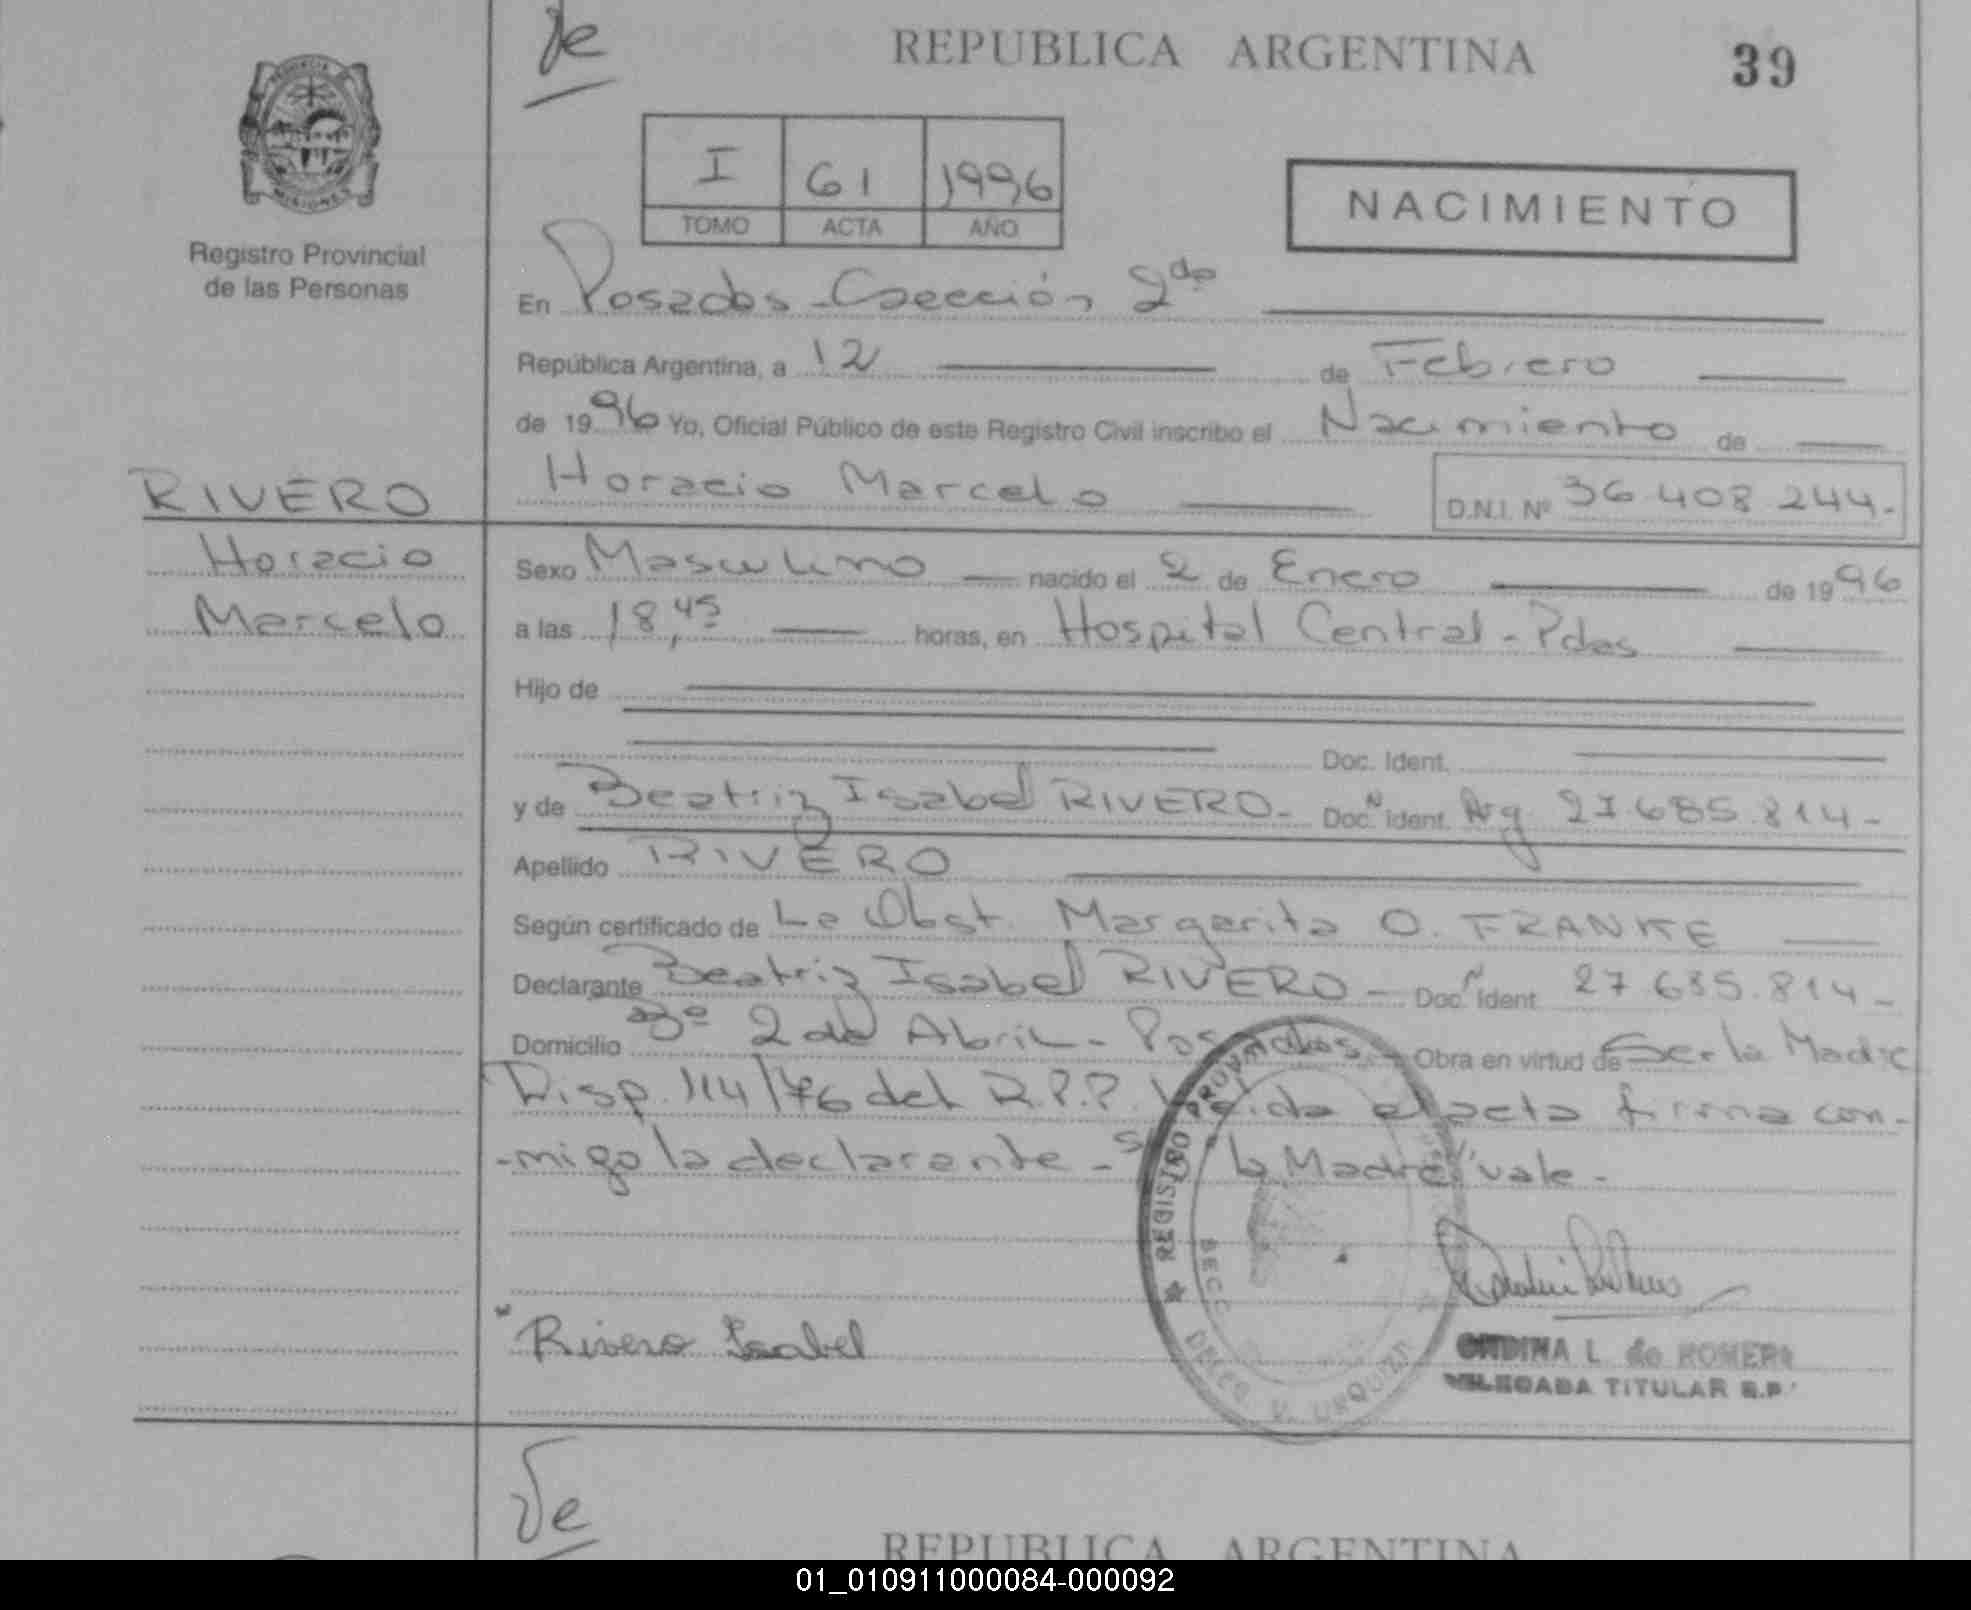 Je
REPUBLICA ARGENTINA
39
I 61 1996
TOMO ACTA AÑO
NACIMIENTO
PROVINCIA DE MISIONES
Registro Provincial
de las Personas
En Posadas - Sección 2da
República Argentina, a 12 de Febrero
de 1996 Yo, Oficial Público de este Registro Civil inscribo el Nacimiento de
Horacio Marcelo D.N.I. Nº 36.408.244.-
RIVERO
Horacio
Marcelo
Sexo Masculino nacido el 2 de Enero de 1996
a las 18,45 horas, en Hospital Central - Pdas
Hijo de
Doc. Ident.
y de Beatriz Isabel RIVERO - Doc. N Ident. Arg 27.685.814 -
Apellido RIVERO
Según certificado de La Obst. Margarita O. FRANKE
Declarante Beatriz Isabel RIVERO - Doc. N Ident 27.685.814 -
Domicilio Bº 2 de Abril - Posadas - Obra en virtud de Ser la Madre
Disp. 114/76 del R.P.P. Leida el acta firma con-
-migo la declarante - "Ser la Madre" vale -
REGISTRO PROVINCIAL
SECC
DELEG. V. URQUIZA
Rivero Isabel
ONDINA L. de ROMERO
DELEGADA TITULAR R.P.
Je
REPUBLICA ARGENTINA
01_010911000084-000092